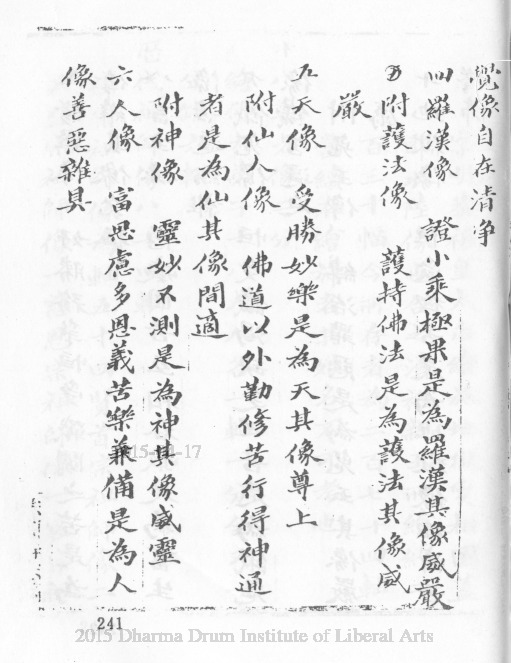 覺像自在清净
四羅漢像 證小乘極果是為羅漢其像威嚴
附護法像 護持佛法是為護法其像威
嚴
五天像 受勝妙樂是為天其像尊上
附仙人像 佛道以外勤修苦行得神通
者是為仙其像閒適
附神像 靈妙不測是為神其像威靈
六人像 富思慮多恩義苦樂兼備是為人
像善惡雜具
241
2015 Dharma Drum Institute of Liberal Arts